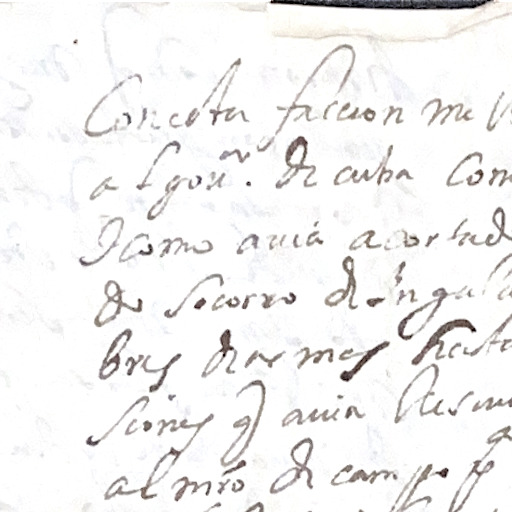 Con esta faccion me
al gou.or de cuba Com
Y como auia acortad
do socorro de Yngala
bres de armas hasta
siones q auia
al mro de campo p